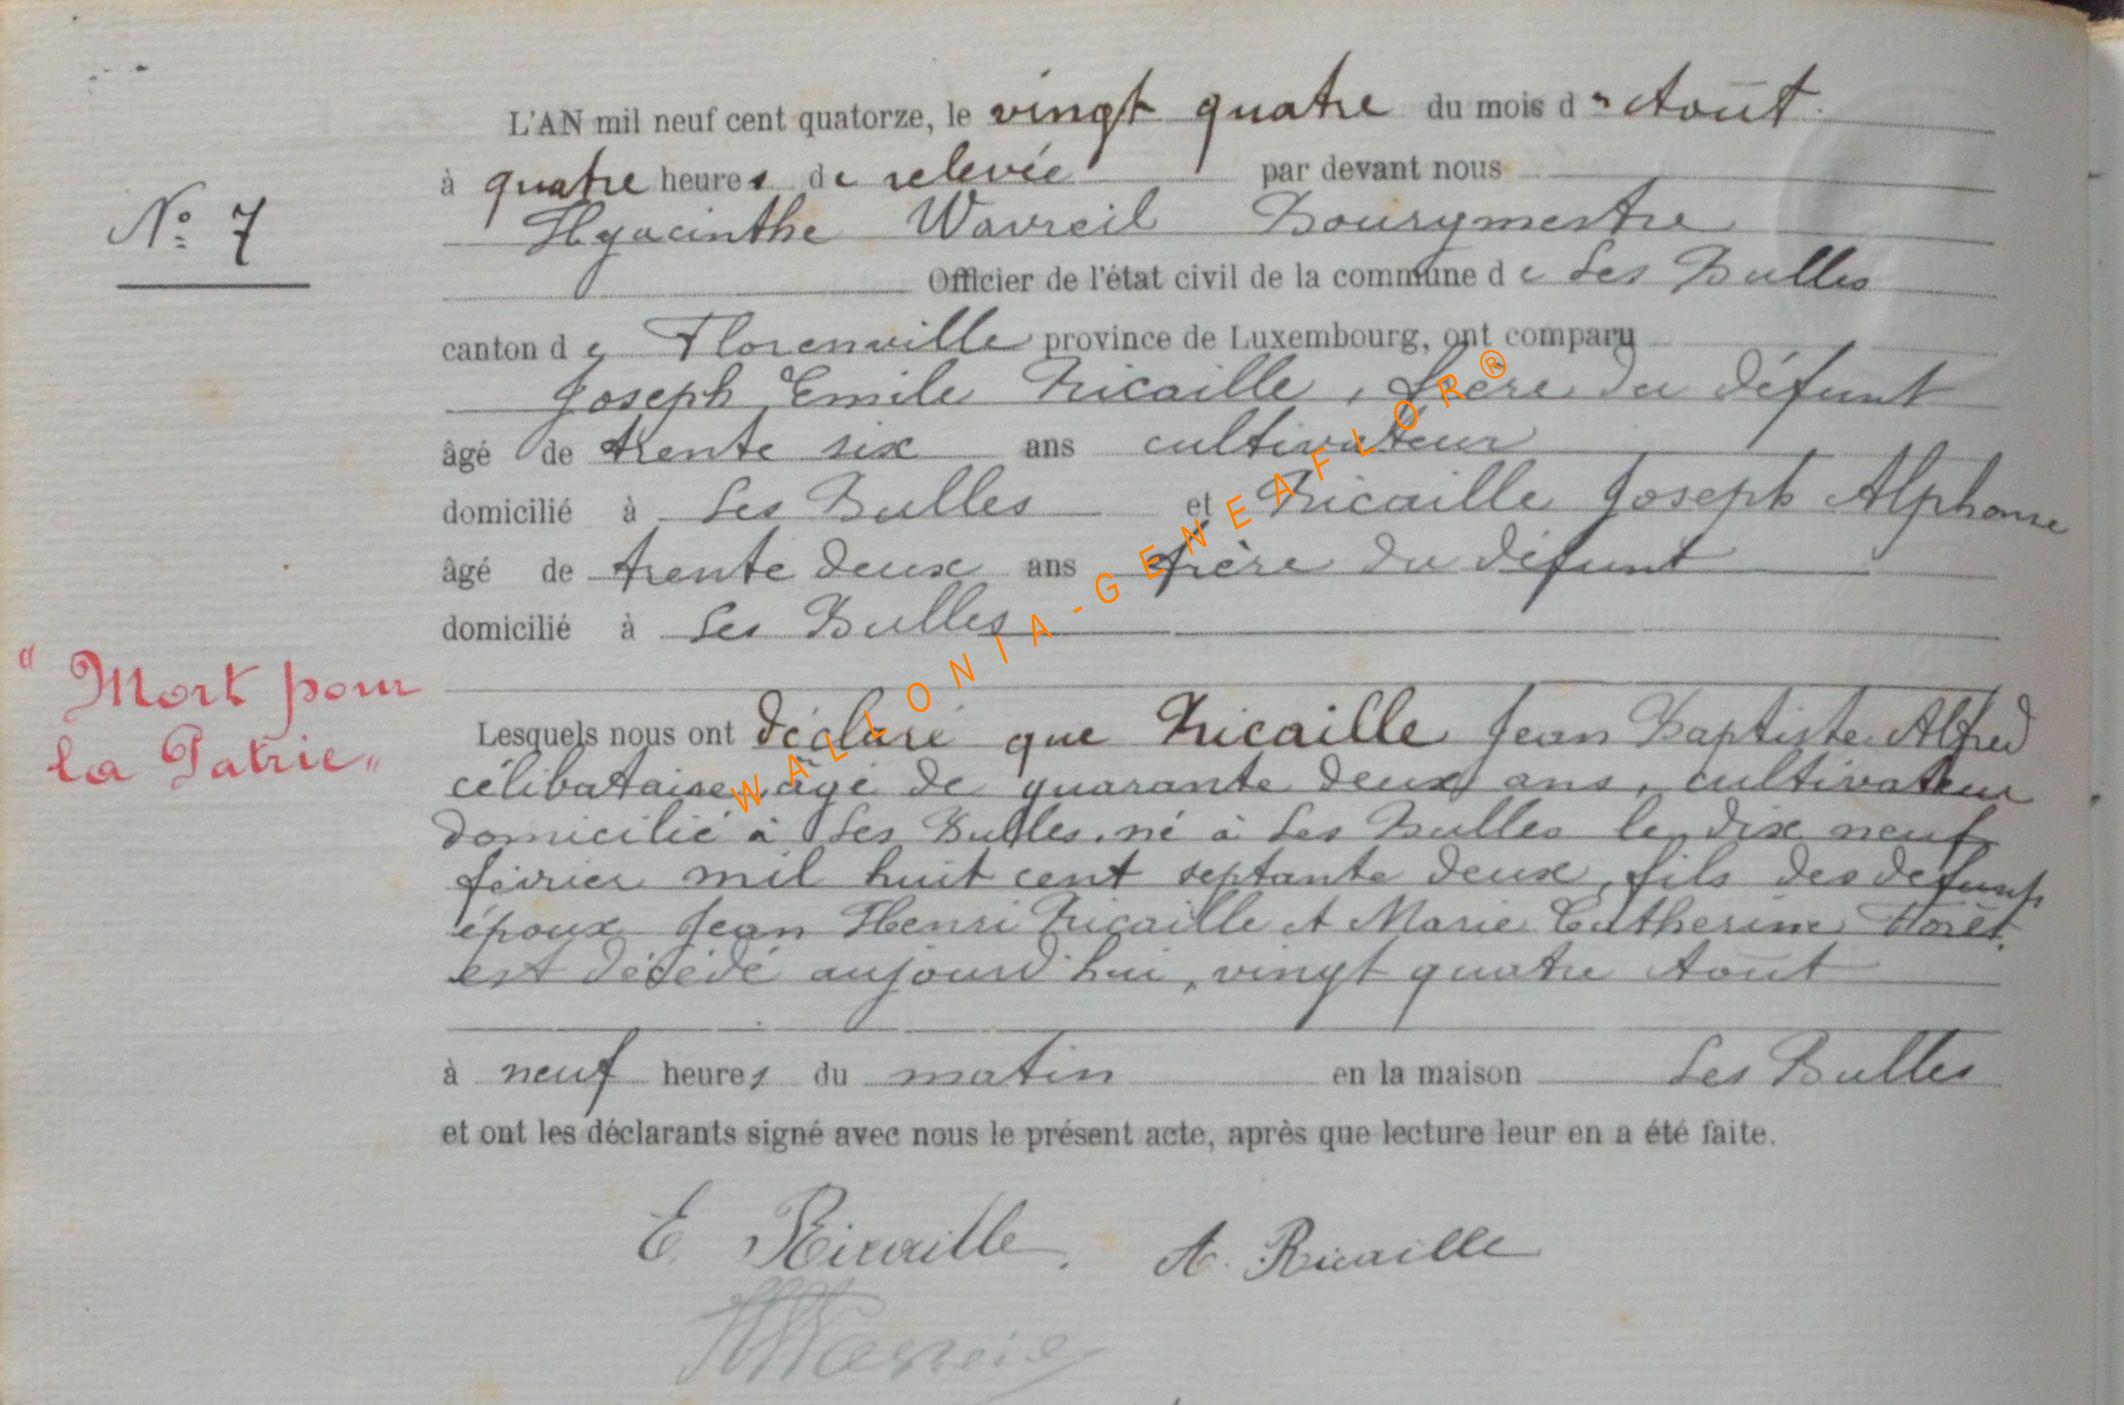 L'AN mil neuf cent quatorze, le vingt quatre du mois d'Août
à quatre heures de relevée par devant nous
N° 7
Hyacinthe Wavreil Bourgmestre
Officier de l'état civil de la commune de Les Bulles
canton de Florenville province de Luxembourg, ont comparu
Joseph Emile Ricaille, frère du défunt
âgé de trente six ans cultivateur
domicilié à Les Bulles et Ricaille Joseph Alphonse
âgé de trente deux ans frère du défunt
domicilié à Les Bulles
"Mort pour
la Patrie"
Lesquels nous ont déclaré que Ricaille Jean Baptiste Alfred
célibataire, âgé de quarante deux ans, cultivateur
domicilié à Les Bulles, né à Les Bulles le dix neuf
février mil huit cent septante deux, fils des défunts
époux Jean Henri Ricaille et Marie Catherine Forêt,
est décédé aujourd'hui, vingt quatre Août
à neuf heures du matin en la maison Les Bulles
et ont les déclarants signé avec nous le présent acte, après que lecture leur en a été faite.
E. Ricaille. A. Ricaille
WALLONIA-GENEAFLOR®